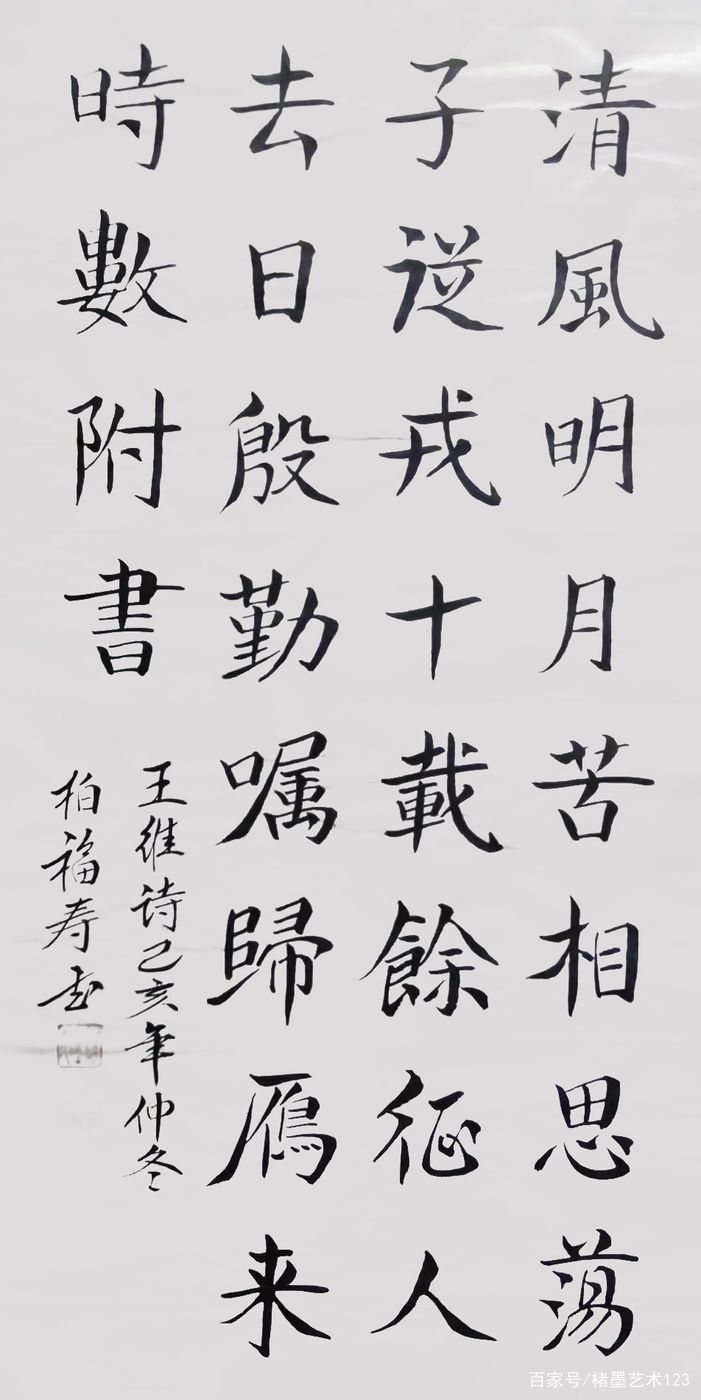 清風明月苦相思蕩
子從戎十載餘征人
去日殷勤嘱歸鴈来
時數附書
王维诗己亥年仲冬
柏福寿书
百家号/楮墨艺术123